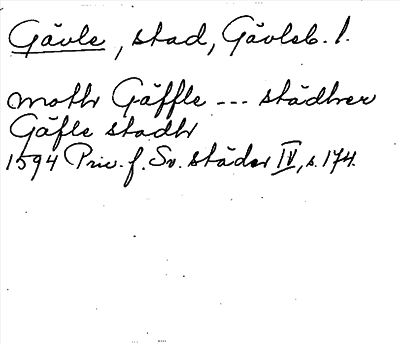 Gävle, stad, Gävleb. l.
moth Gäffle --- städher
Gäfle stadh
1594 Priv. f. Sv. städer IV, s. 174.